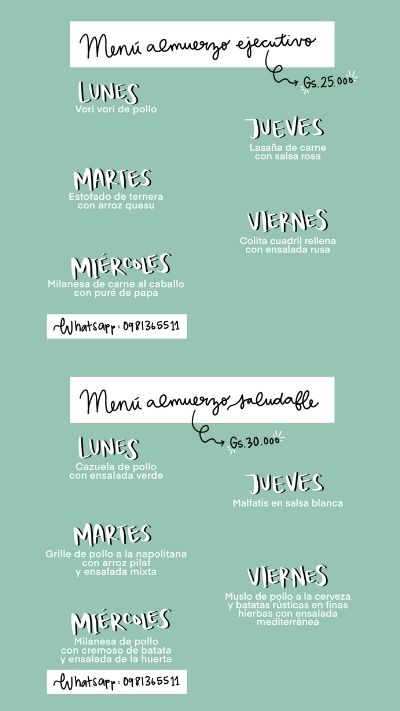 Menú almuerzo ejecutivo
Gs.25.000
LUNES
Vori vori de pollo
MARTES
Estofado de ternera
con arroz quesu
MIÉRCOLES
Milanesa de carne al caballo
con puré de papa
JUEVES
Lasaña de carne
con salsa rosa
VIERNES
Colita cuadril rellena
con ensalada rusa
Whatsapp: 0981365511
Menú almuerzo saludable
Gs.30.000
LUNES
Cazuela de pollo
con ensalada verde
MARTES
Grille de pollo a la napolitana
con arroz pilaf
y ensalada mixta
MIÉRCOLES
Milanesa de pollo
con cremoso de batata
y ensalada de la huerta
JUEVES
Malfatis en salsa blanca
VIERNES
Muslo de pollo a la cerveza
y batatas rústicas en finas
hierbas con ensalada
mediterránea
Whatsapp: 0981365511